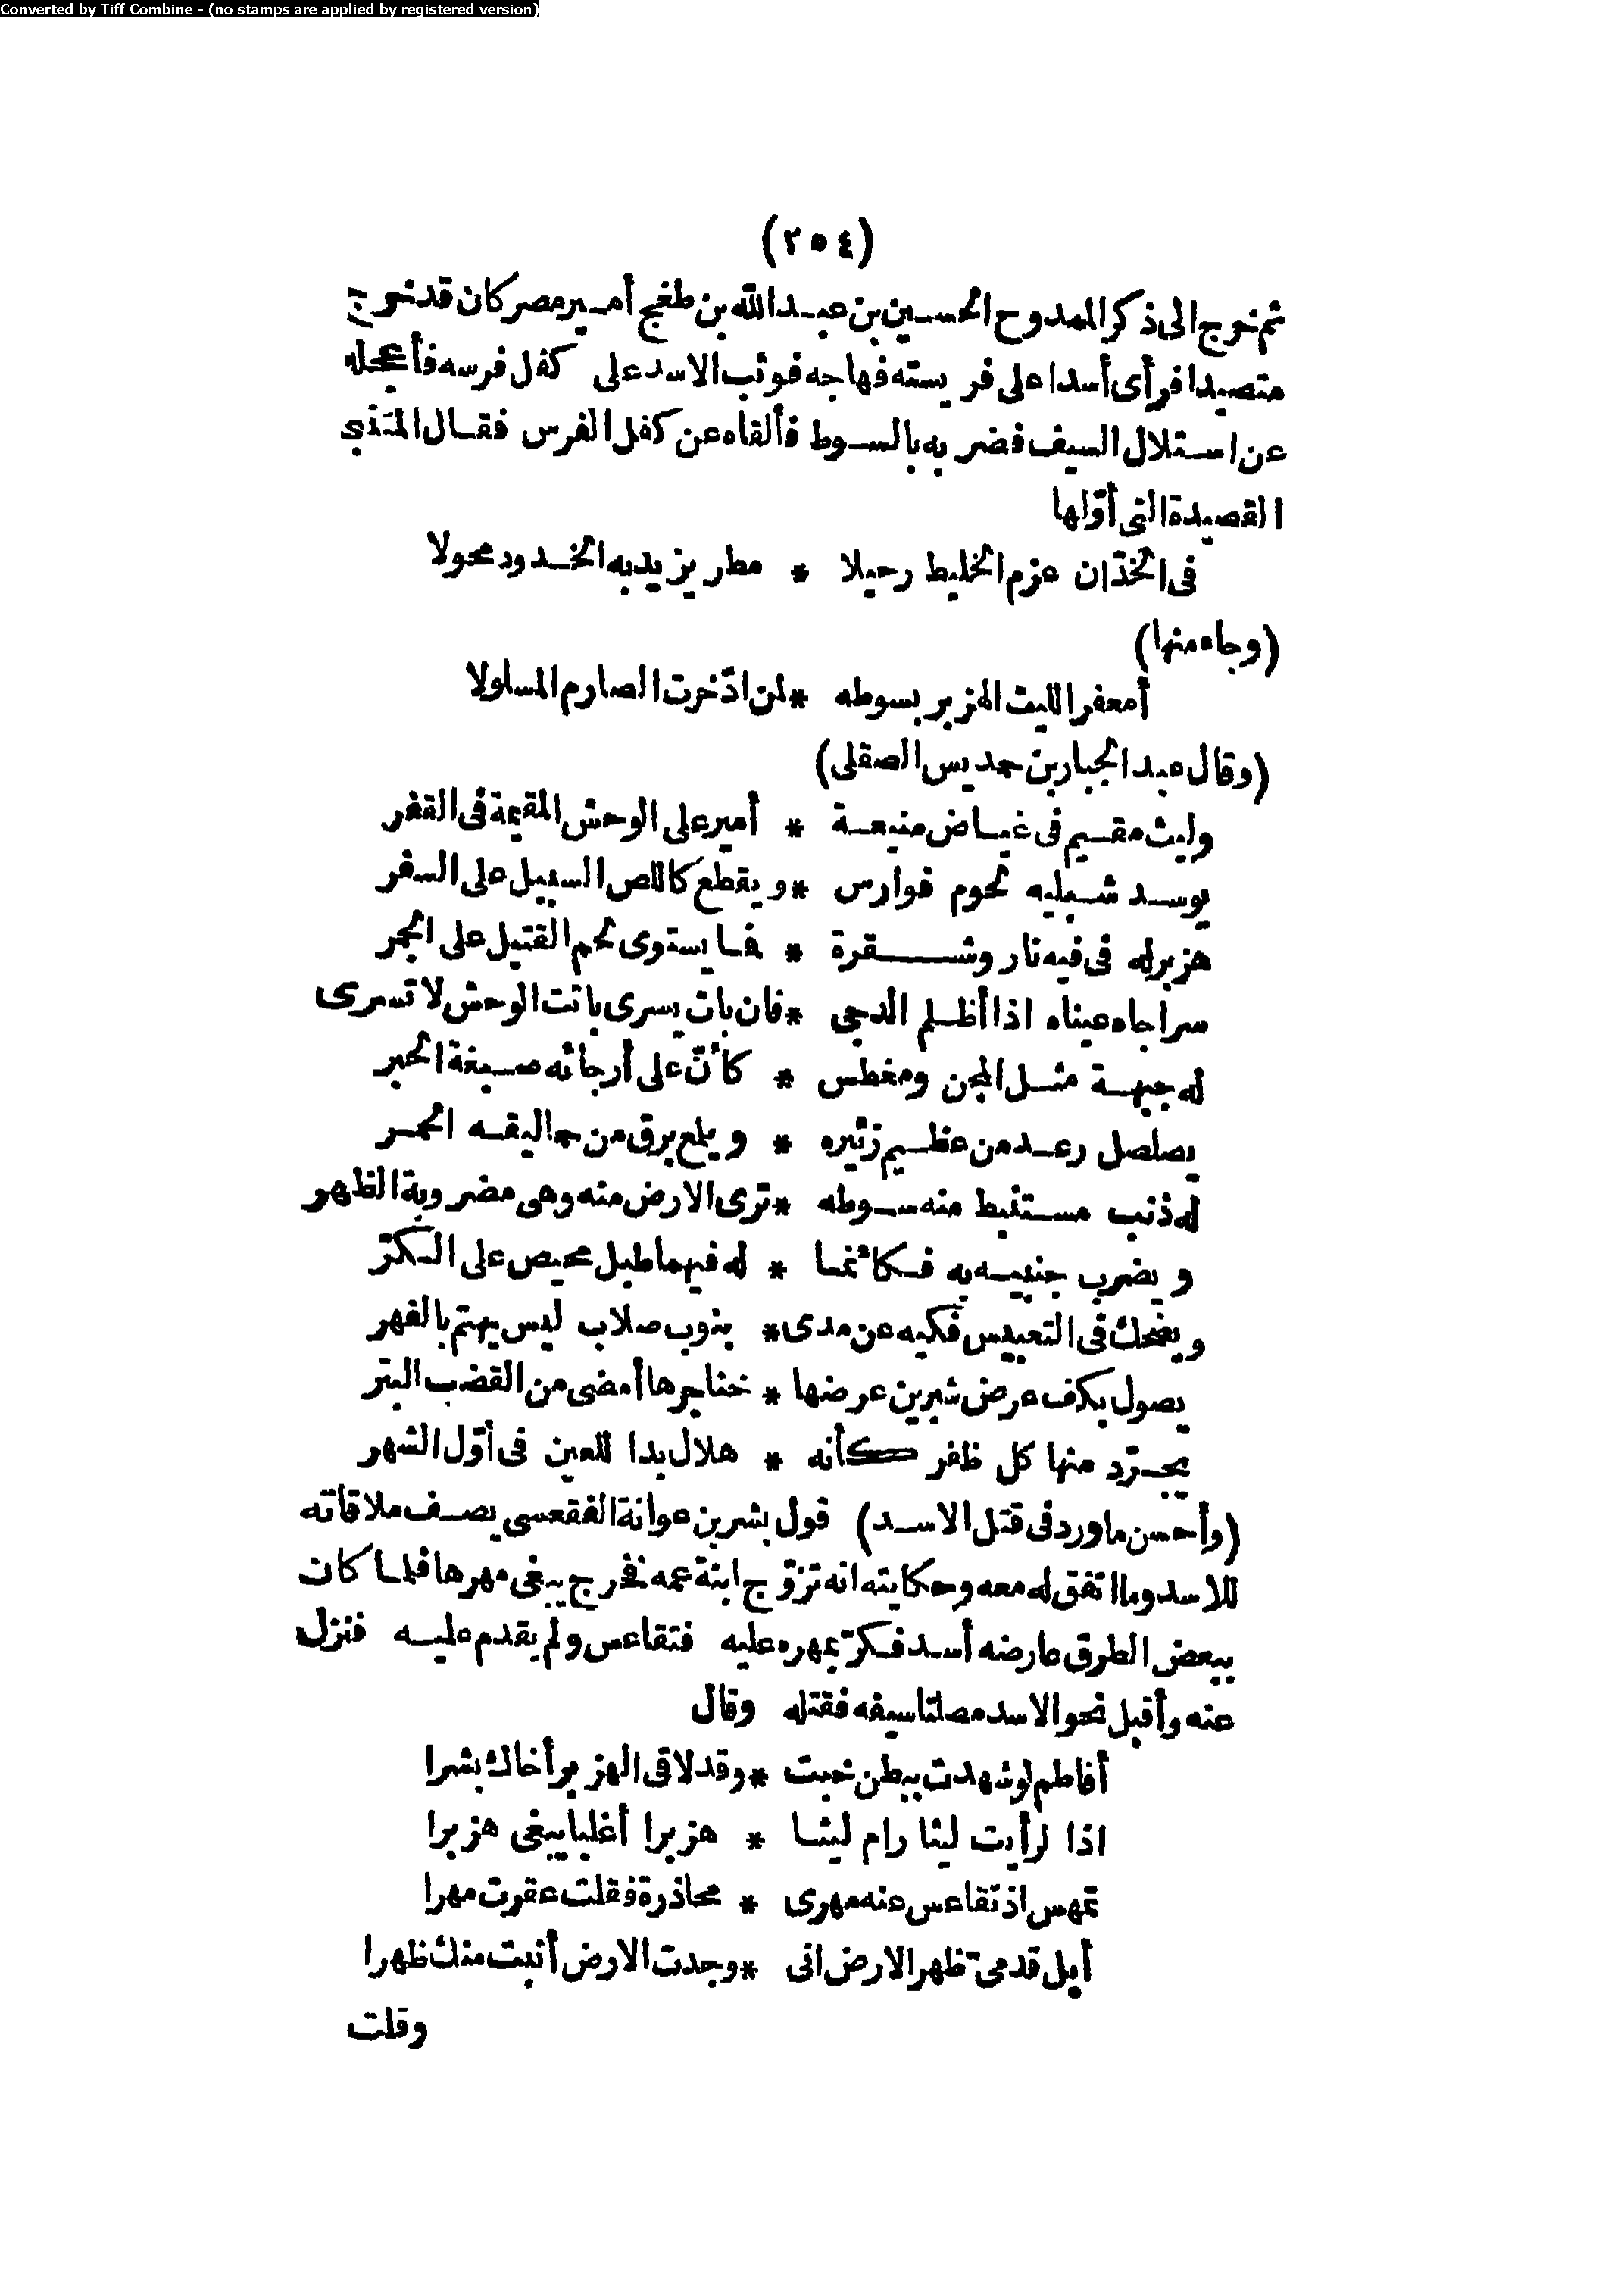 Converted by Tiff Combine - (no stamps are applied by registered version)
(٢٥٤)
ثم خرج الى ذكر الممدوح الحسين بن عبد الله بن طغج أمير مصر كان قد خرج
متصيدا فرأى أسدا على فريسته فهاجه فوثب الاسد على كفل فرسه فأعجله
عن استلال السيف فضربه بالسوط فألقاه عن كفل الفرس فقال المتنبي
القصيدة التى أوّلها
فى الخدّ ان عزم الخليط رحيلا * مطر يزيد به الخدود محولا
(وجاء منها)
أمعفر الليث الهزبر بسوطه * لمن ادّخرت الصارم المسلولا
(وقال عبد الجبار بن حمديس الصقلى)
وليث مقيم فى غياض منيعة * أمير على الوحش المقيمة فى القفر
يوسد شبليه لحوم فوارس * ويقطع كاللص السبيل على السفر
هزبر له فى فيه نار وشقرة * فما يستوى لحم القتيل على الجمر
سراجاه عيناه اذا أظلم الدجى * فان بات يسرى باتت الوحش لا تسرى
له جبهة مثل المجن ومغطس * كأنّ على أرجائه صبغة الحبر
يصلصل رعد من عظيم زئيره * ويلمع برق من حماليقه الحمر
له ذنب مستنبط منه سوطه * ترى الارض منه وهى مضروبة الظهر
ويضرب جنبيه به فكأنما * له فيهما طبل يحيص على الكرّ
ويضحك فى التعبيس فكيه عن مدى * بنوب صلاب ليس يهتم بالفهر
يصول بكف عرض شبرين عرضها * خناجرها أمضى من القضب البتر
يجرّد منها كل ظفر كأنه * هلال بدا للعين فى أوّل الشهر
(وأحسن ما ورد فى قتل الاسد) قول بشر بن عوانة الفقعسى يصف ملاقاته
للاسد وما اتفق له معه وحكايته انه تزوّج ابنة عمه فخرج يبغى مهرها فلما كان
ببعض الطرق عارضه أسد فكرّ بمهره عليه فتقاعس ولم يقدم عليه فنزل
عنه وأقبل نحو الاسد مصلتا سيفه فقتله وقال
أفاطم لو شهدت ببطن خبت * وقد لاقى الهزبر أخاك بشرا
اذا لرأيت ليثا رام ليثا * هزبرا أغلبا يبغى هزبرا
تبهنس اذ تقاعس عنه مهرى * محاذرة فقلت عقرت مهرا
أنل قدمىّ ظهر الارض انى * وجدت الارض أثبت منك ظهرا
وقلت